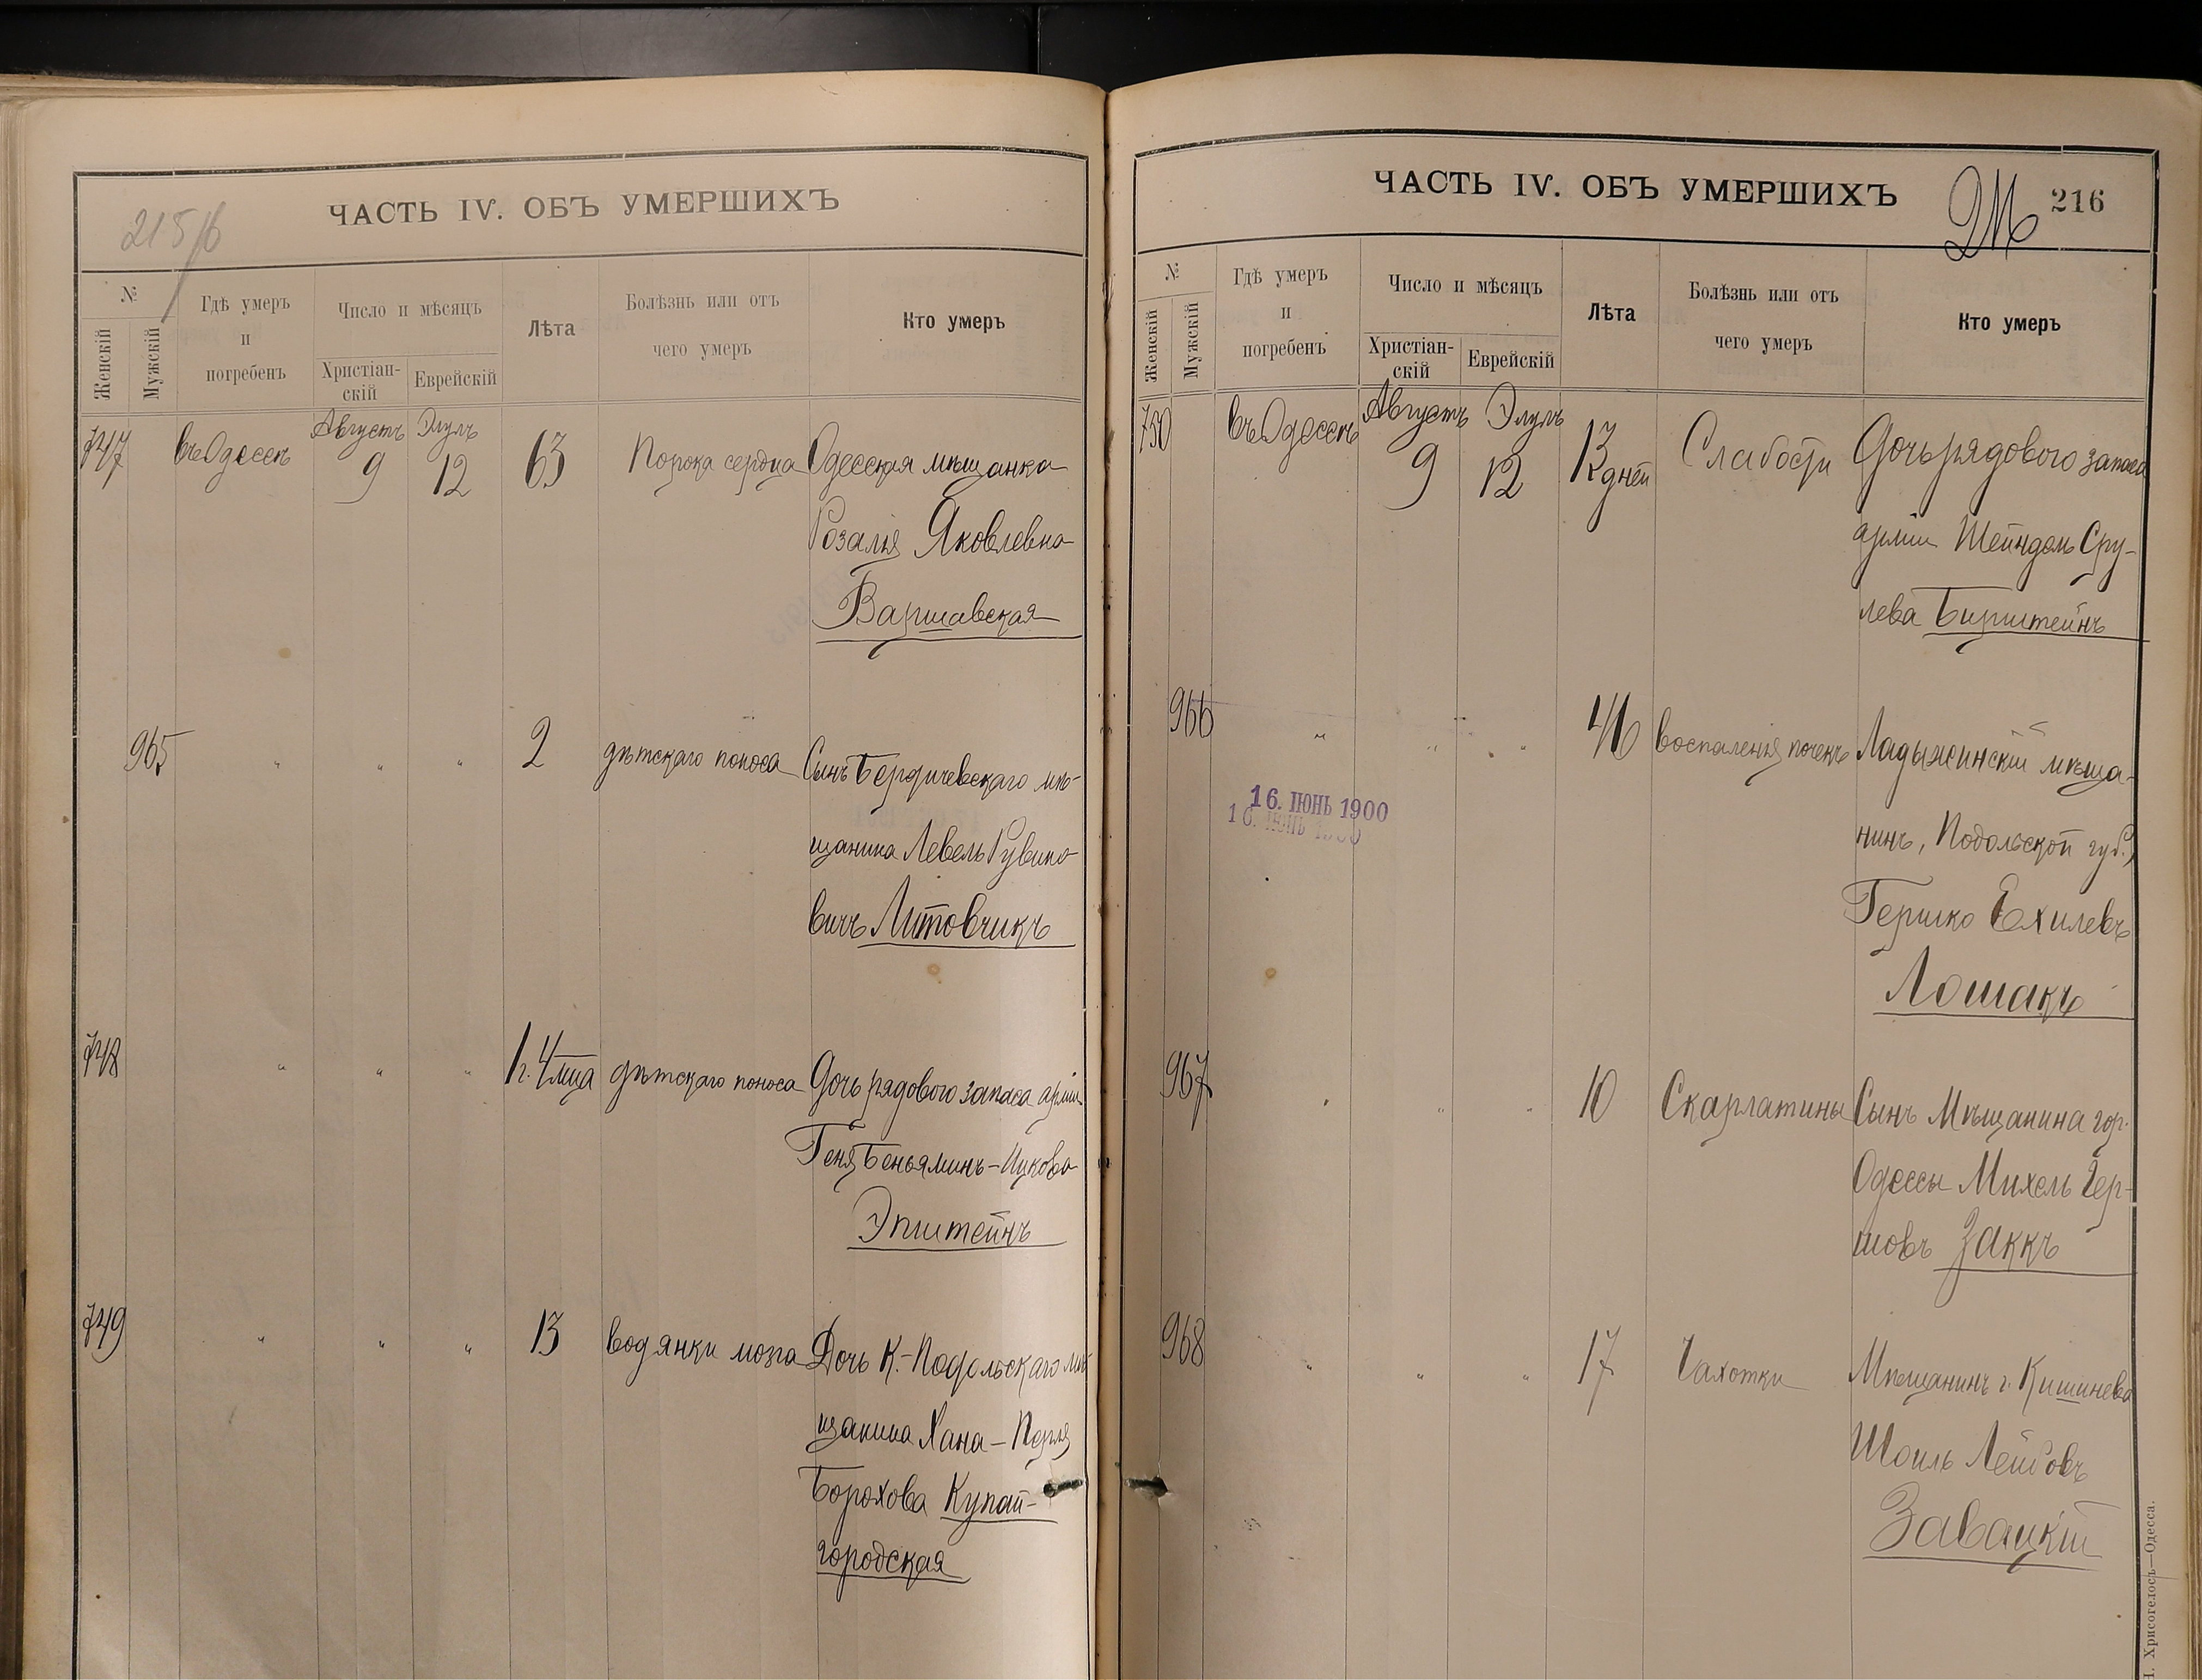 215/б
ЧАСТЬ IV. ОБЪ УМЕРШИХЪ
№
Женскій
Мужскій
Гдѣ умеръ
и
погребенъ
Число и мѣсяцъ
Христіан-
скій
Еврейскій
Лѣта
Болѣзнь или отъ
чего умеръ
Кто умеръ
747 въ Одессѣ Августъ 9 Элулъ 12 63 Порока сердца Одесская мѣщанка
Розалія Яковлевна
Варшавская
965 " " " 2 дѣтскаго поноса Сынъ Бердичевскаго мѣ-
щанина Левель Рувино-
вичъ Литовчикъ
748 " " " 1 г. 4 мца дѣтскаго поноса Дочь рядового запаса арміи
Геня Беньяминъ-Ицкова
Эпштейнъ
749 " " " 13 водянки мозга Дочь К.-Подольскаго мѣ-
щанина Хана-Перля
Борохова Купай-
городская
ЧАСТЬ IV. ОБЪ УМЕРШИХЪ
216
№
Женскій
Мужскій
Гдѣ умеръ
и
погребенъ
Число и мѣсяцъ
Христіан-
скій
Еврейскій
Лѣта
Болѣзнь или отъ
чего умеръ
Кто умеръ
750 въ Одессѣ Августъ 9 Элулъ 12 13 дней Слабости Дочь рядового запаса
арміи Шейндель Сру-
лева Бирштейнъ
966 " " " 46 воспаленія почекъ Ладыжинскій мѣща-
нинъ, Подольской губ.,
Гершко Ехилевъ
Лошакъ
16. ІЮНЬ 1900
16. ІЮНЬ 1900
967 " " " 10 Скарлатины Сынъ Мѣщанина гор.
Одессы Михель Гер-
шовъ Заккъ
968 " " " 17 Чахотки Мѣщанинъ г. Кишинева
Шоиль Лейбовъ
Завацкій
Н. Хрисогелосъ—Одесса.